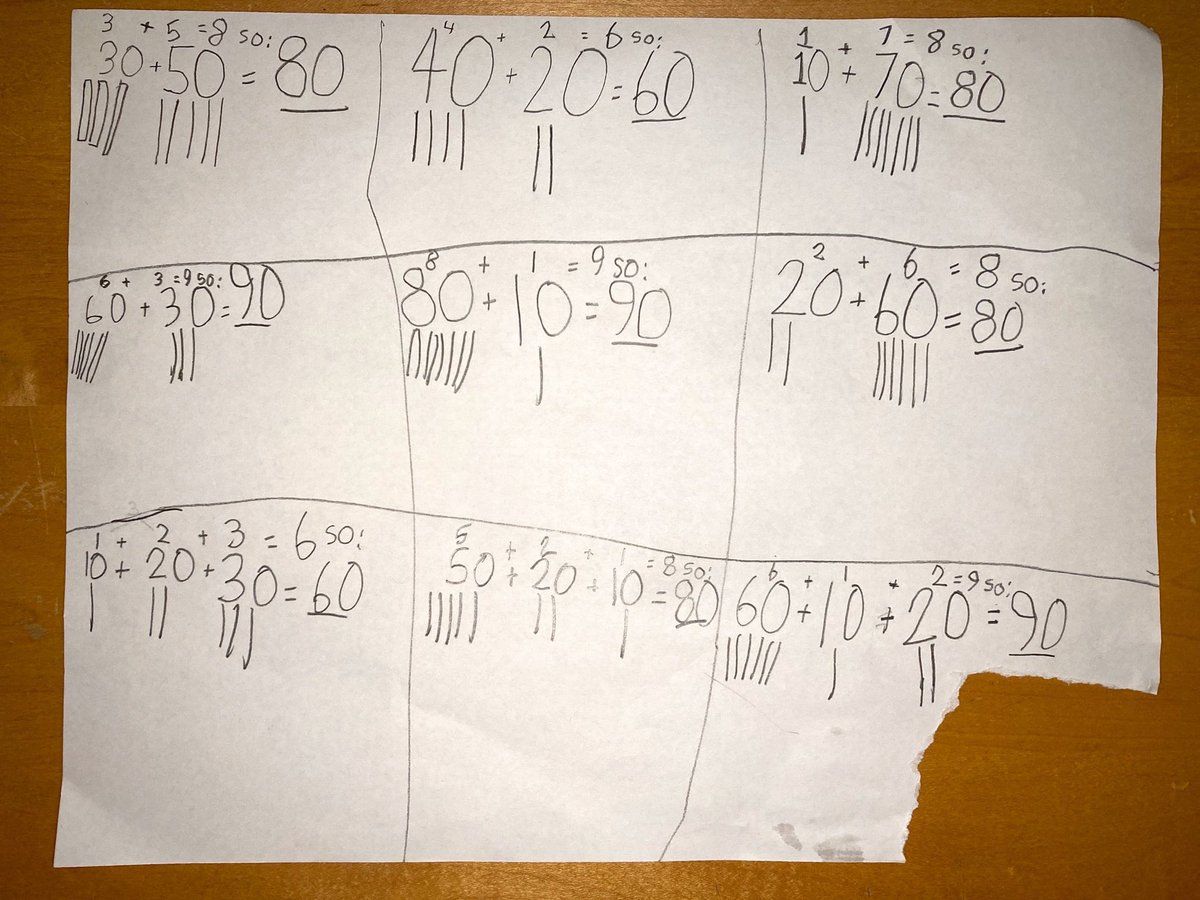 3 + 5 = 8 so:
30 + 50 = 80
4 + 2 = 6 so:
40 + 20 = 60
1 + 7 = 8 so:
10 + 70 = 80
6 + 3 = 9 so:
60 + 30 = 90
8 + 1 = 9 so:
80 + 10 = 90
2 + 6 = 8 so:
20 + 60 = 80
1 + 2 + 3 = 6 so:
10 + 20 + 30 = 60
5 + 2 + 1 = 8 so:
50 + 20 + 10 = 80
6 + 1 + 2 = 9 so:
60 + 10 + 20 = 90